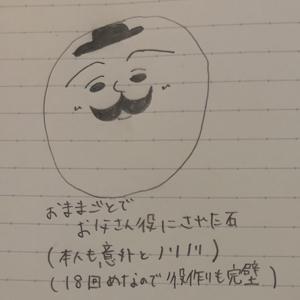 おままごとで
お父さん役にされた石
(本人も意外とノリノリ)
(18回めなので役作りも完璧)